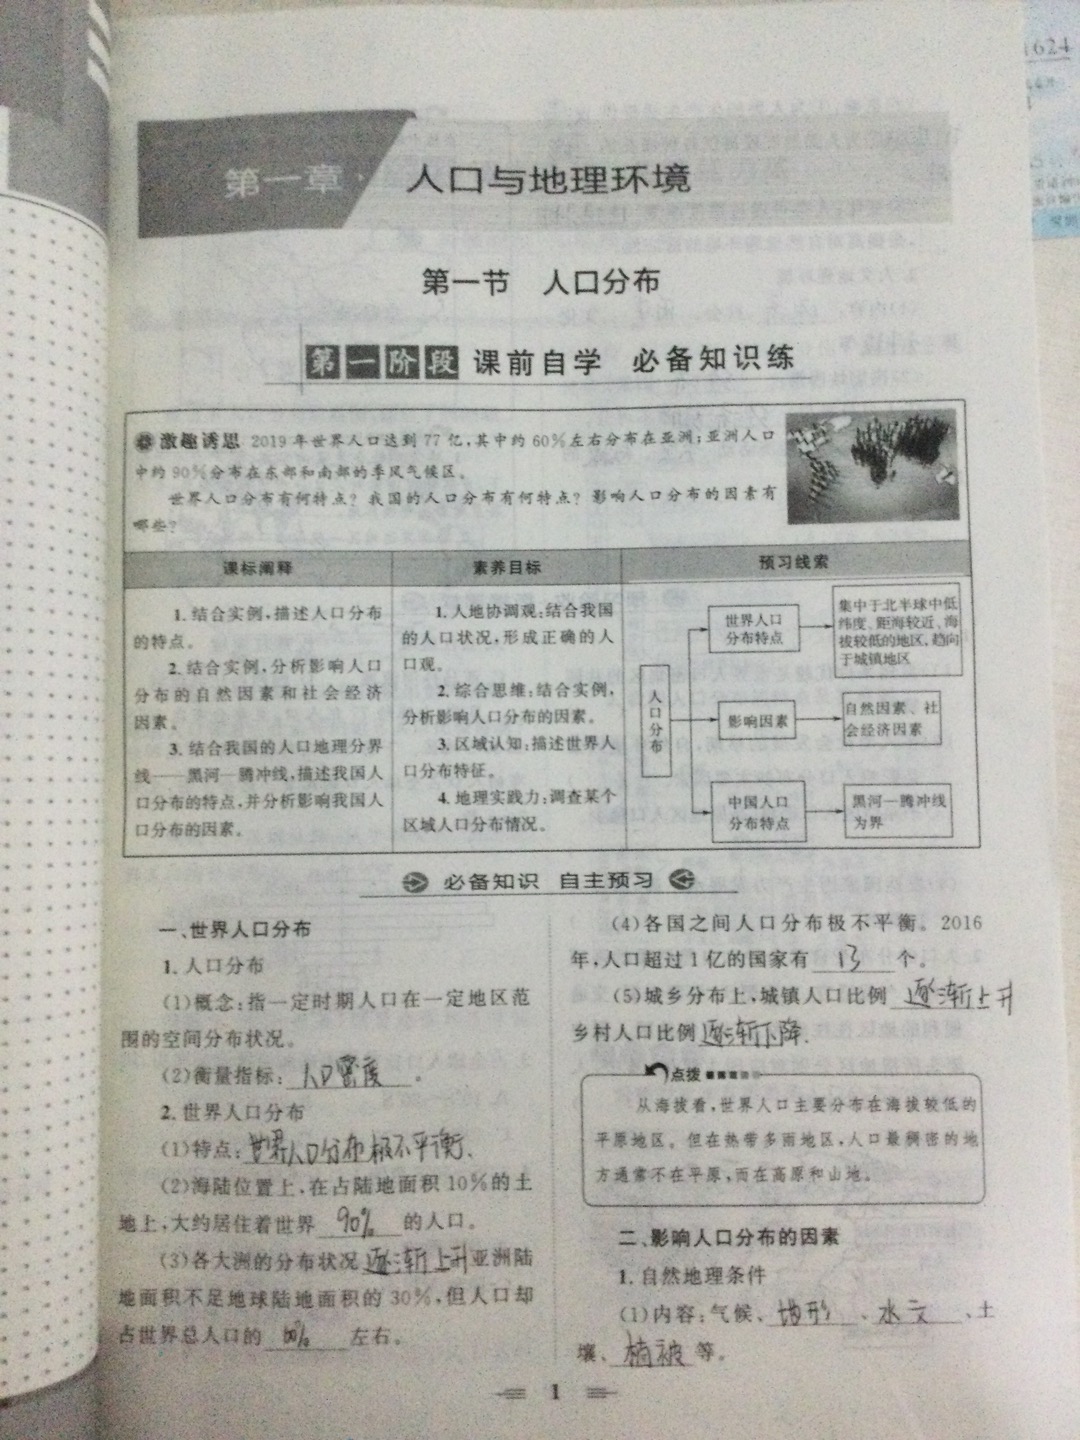 1624
第一章
人口与地理环境
第一节 人口分布
第一阶段 课前自学 必备知识练
激趣诱思 2019年世界人口达到77亿,其中约60%左右分布在亚洲;亚洲人口
中约90%分布在东部和南部的季风气候区。
世界人口分布有何特点?我国的人口分布有何特点?影响人口分布的因素有
哪些?
课标阐释
1.结合实例,描述人口分布
的特点。
2.结合实例,分析影响人口
分布的自然因素和社会经济
因素。
3.结合我国的人口地理分界
线——黑河—腾冲线,描述我国人
口分布的特点,并分析影响我国人
口分布的因素。
素养目标
1.人地协调观:结合我国
的人口状况,形成正确的人
口观。
2.综合思维:结合实例,
分析影响人口分布的因素。
3.区域认知:描述世界人
口分布特征。
4.地理实践力:调查某个
区域人口分布情况。
预习线索
人口分布
世界人口
分布特点
集中于北半球中低
纬度、距海较近、海
拔较低的地区,趋向
于城镇地区
影响因素
自然因素、社
会经济因素
中国人口
分布特点
黑河—腾冲线
为界
必备知识 自主预习
一、世界人口分布
1.人口分布
(1)概念:指一定时期人口在一定地区范
围的空间分布状况。
(2)衡量指标:人口密度。
2.世界人口分布
(1)特点:世界人口分布极不平衡、
(2)海陆位置上,在占陆地面积10%的土
地上,大约居住着世界90%的人口。
(3)各大洲的分布状况逐渐上升亚洲陆
地面积不足地球陆地面积的30%,但人口却
占世界总人口的 左右。
(4)各国之间人口分布极不平衡。2016
年,人口超过1亿的国家有13个。
(5)城乡分布上,城镇人口比例逐渐上升
乡村人口比例逐渐下降.
点拨
从海拔看,世界人口主要分布在海拔较低的
平原地区。但在热带多雨地区,人口最稠密的地
方通常不在平原,而在高原和山地。
二、影响人口分布的因素
1.自然地理条件
(1)内容:气候、地形、水文、土
壤、植被等。
1